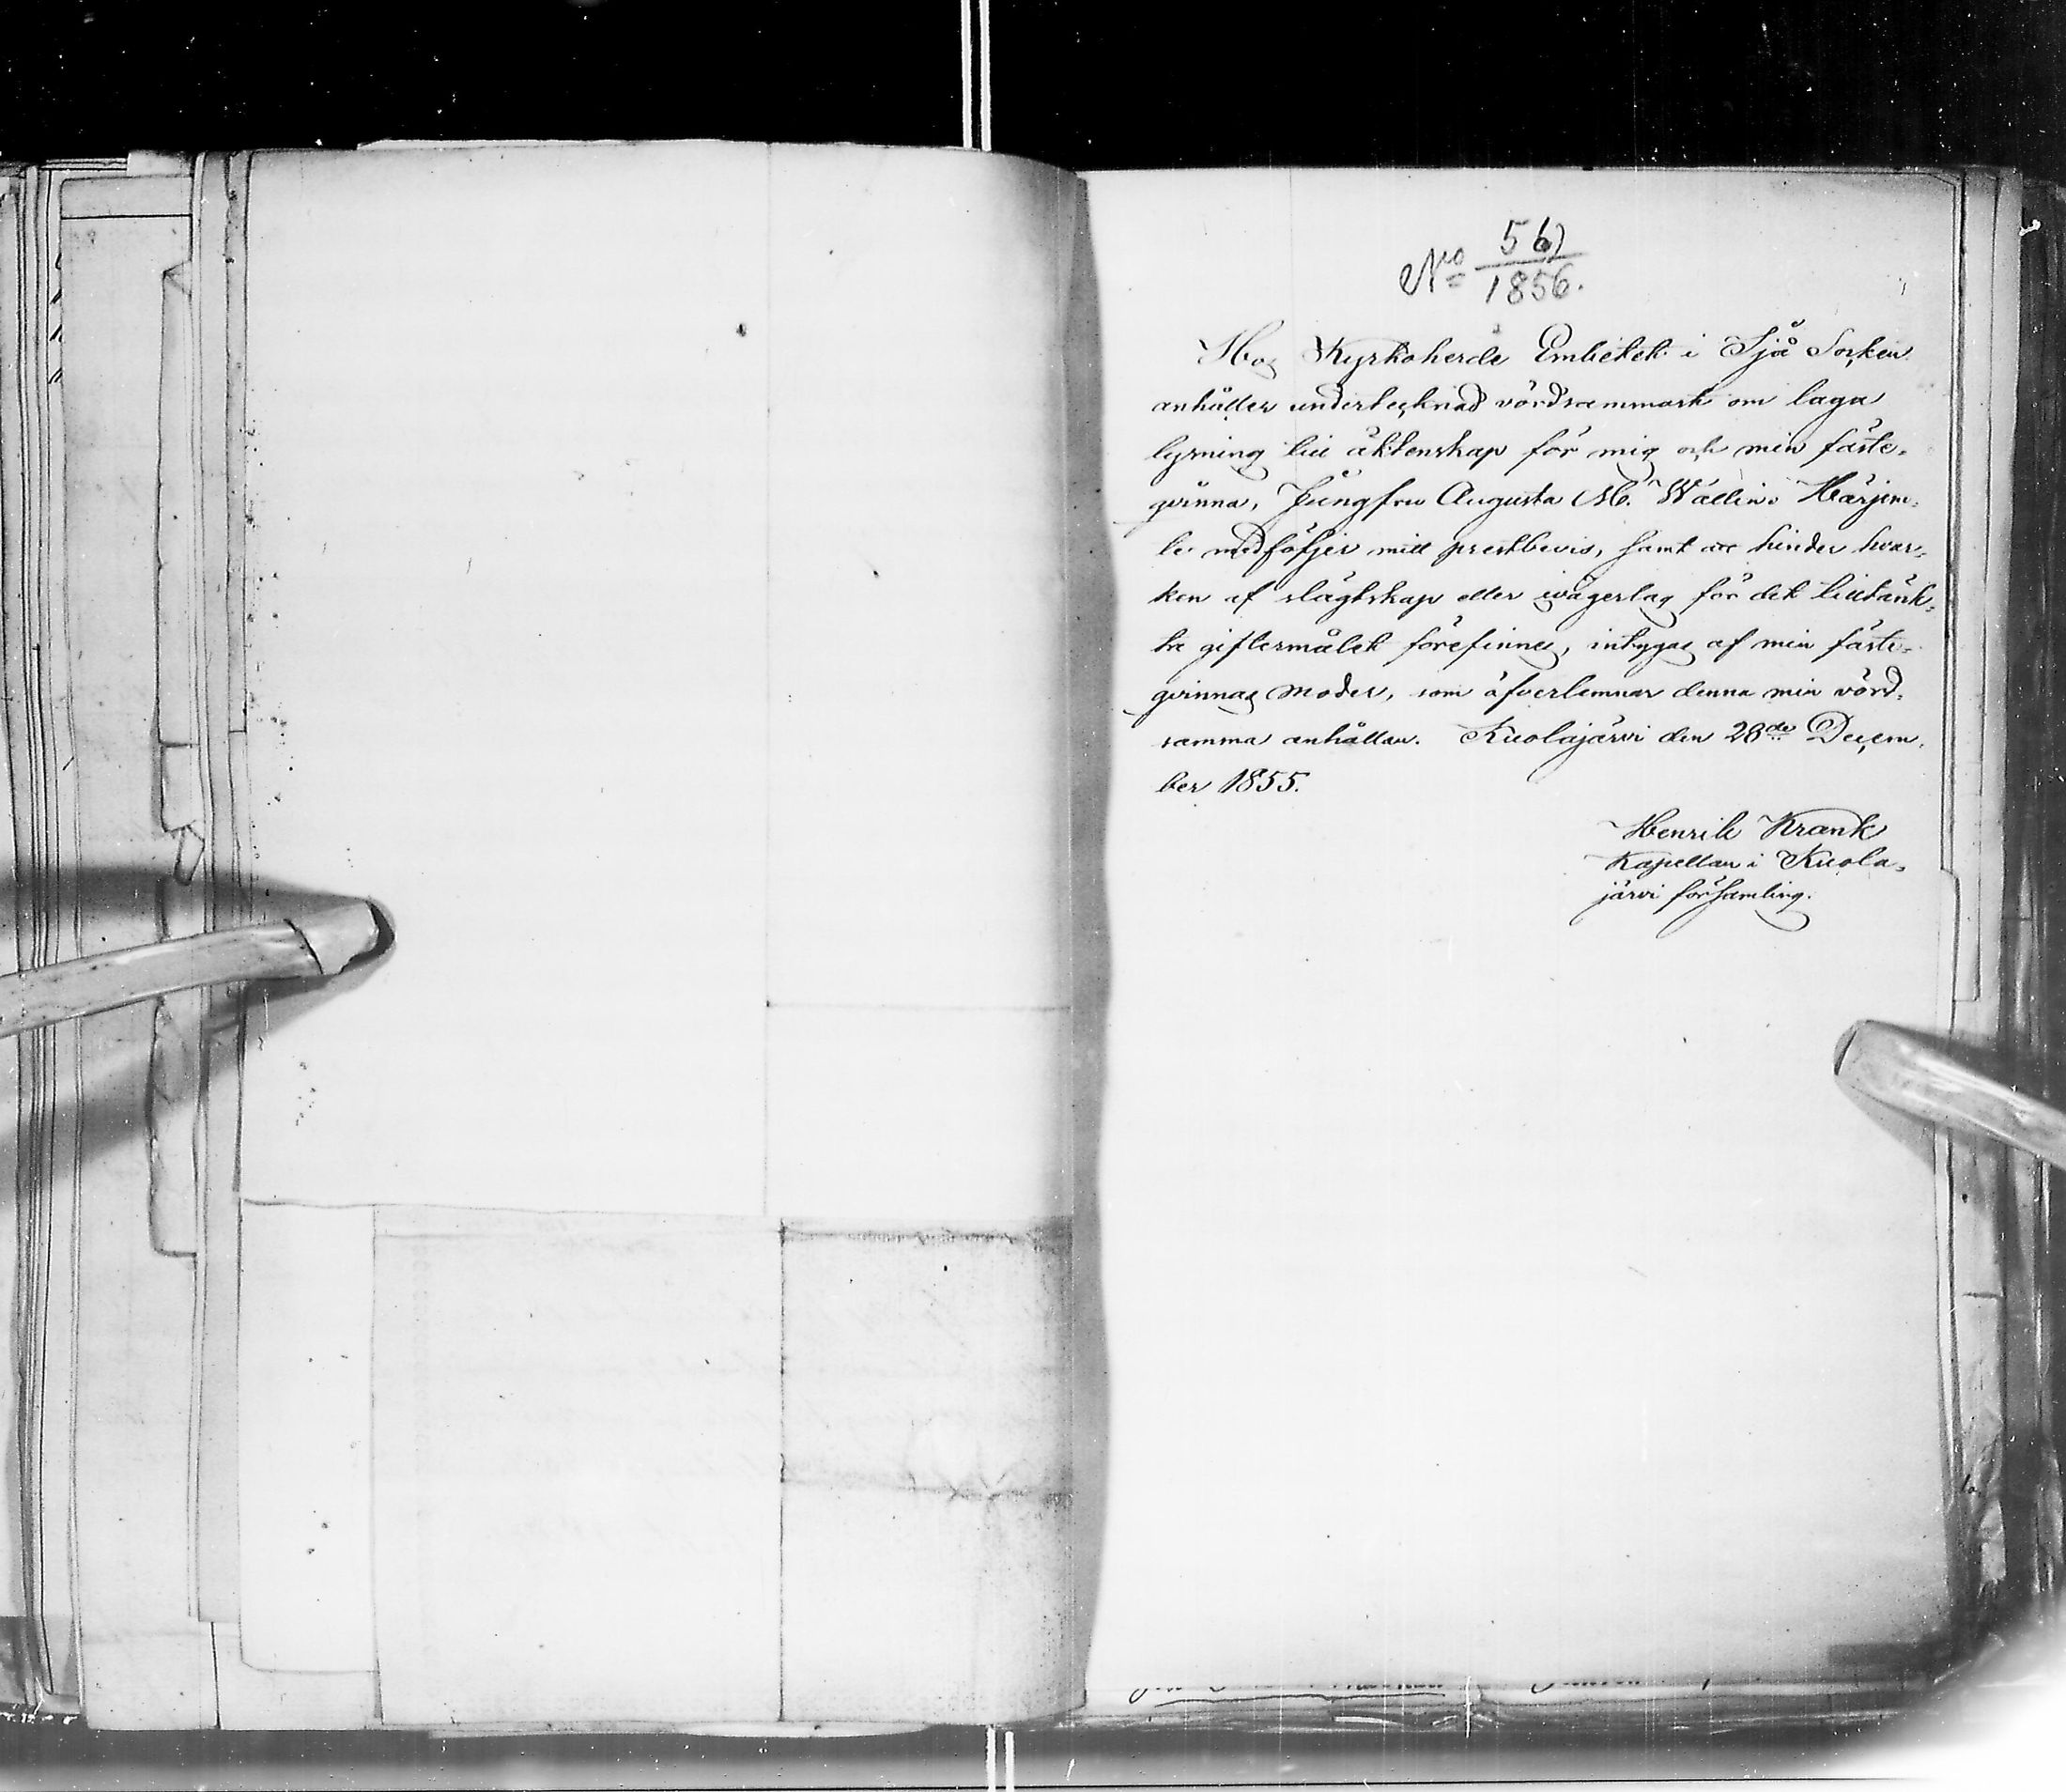 No 562
1856.
Hos Kyrkoherde Embetet i Ijå Socken
anhåller undertecknad vördsammast om laga
lysning till äktenskap för mig och min fäste-
qvinna, Jungfru Augusta M. Wallin. Härjem-
te medföljer mitt prestbevis, samt att hinder hvar-
ken af slägtskap eller svågerlag för det tilltänk-
ta giftermålet förefinnes, intygas af min fäste-
qvinnas moder, som öfverlemnar denna min vörd-
samma anhållan. Kuolajärvi den 28de Decem-
ber 1855.
Henrik Krank
Kapellan i Kuola-
järvi församling.